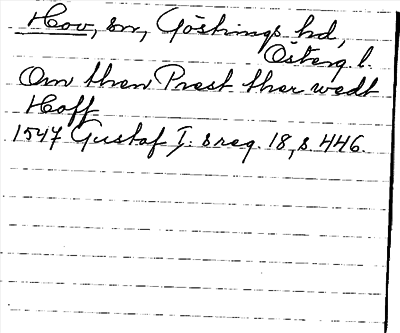 Hov, sn, Göstrings hd,
Österg. l.
Om then Prest ther wedt
Hoff
1547 Gustaf I:s reg. 18, s. 446.